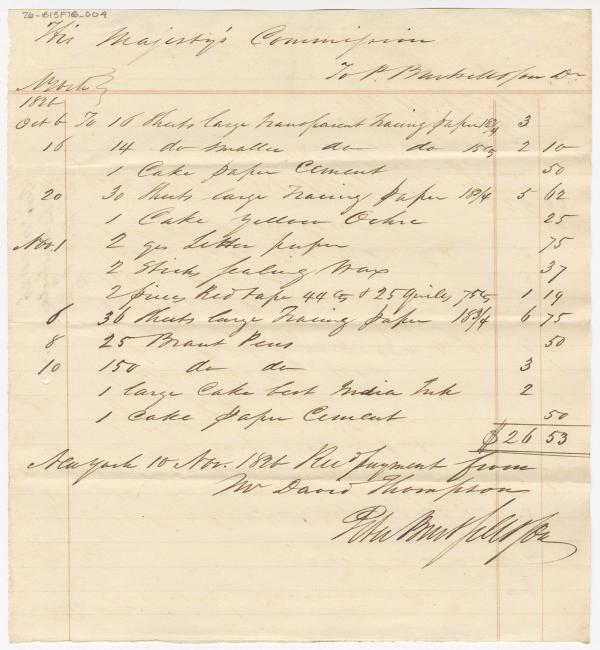 76-B15F7B_004
His Majesty's Commission
To P. Burtsell & Son Dr
N York
1826
Oct 6 To 16 Sheets large transparent Tracing Paper 18¾ 3
16 14 do smaller do do 15cts 2 10
1 Cake paper Cement 50
20 30 Sheets large Tracing Paper 18¾ 5 62
1 Cake yellow Ochre 25
Nov. 1 2 qrs Letter paper 75
2 Sticks Sealing Wax 37
2 pieces Red tape 44cts & 25 Quills 75cts 1 19
6 36 Sheets large Tracing Paper 18¾ 6 75
8 25 Pens 50
10 150 do do 3
1 large Cake best India Ink 2
1 cake paper Cement 50
$26 53
New York 10 Nov. 1826 Recd payment from
Mr David Thompson
Peter Burtsell & Son